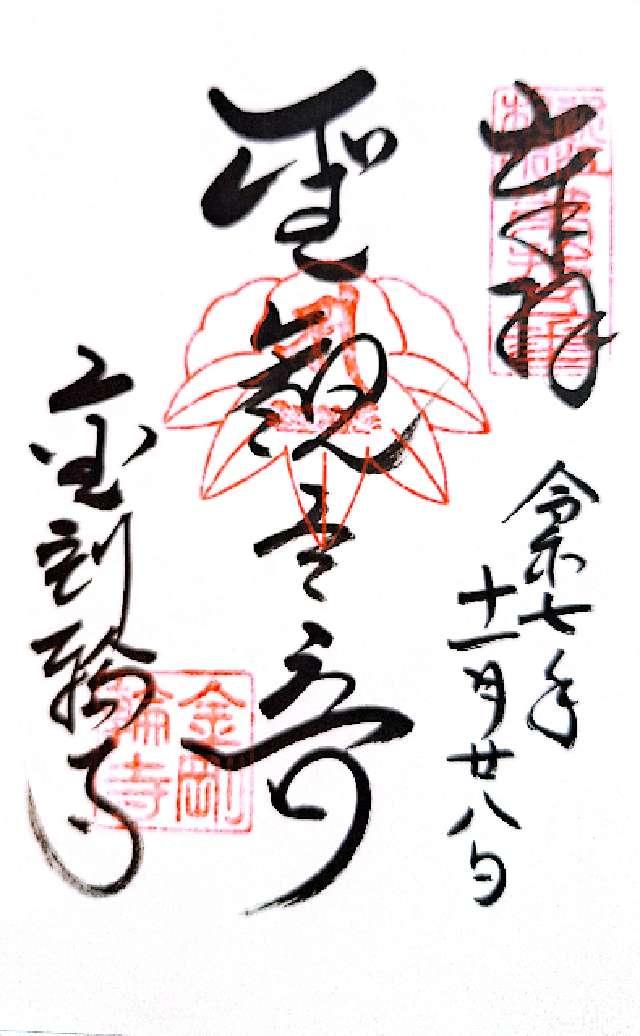 奉拝
令和七年
十一月廿八日
聖観音
金剛輪寺
金剛
輪寺